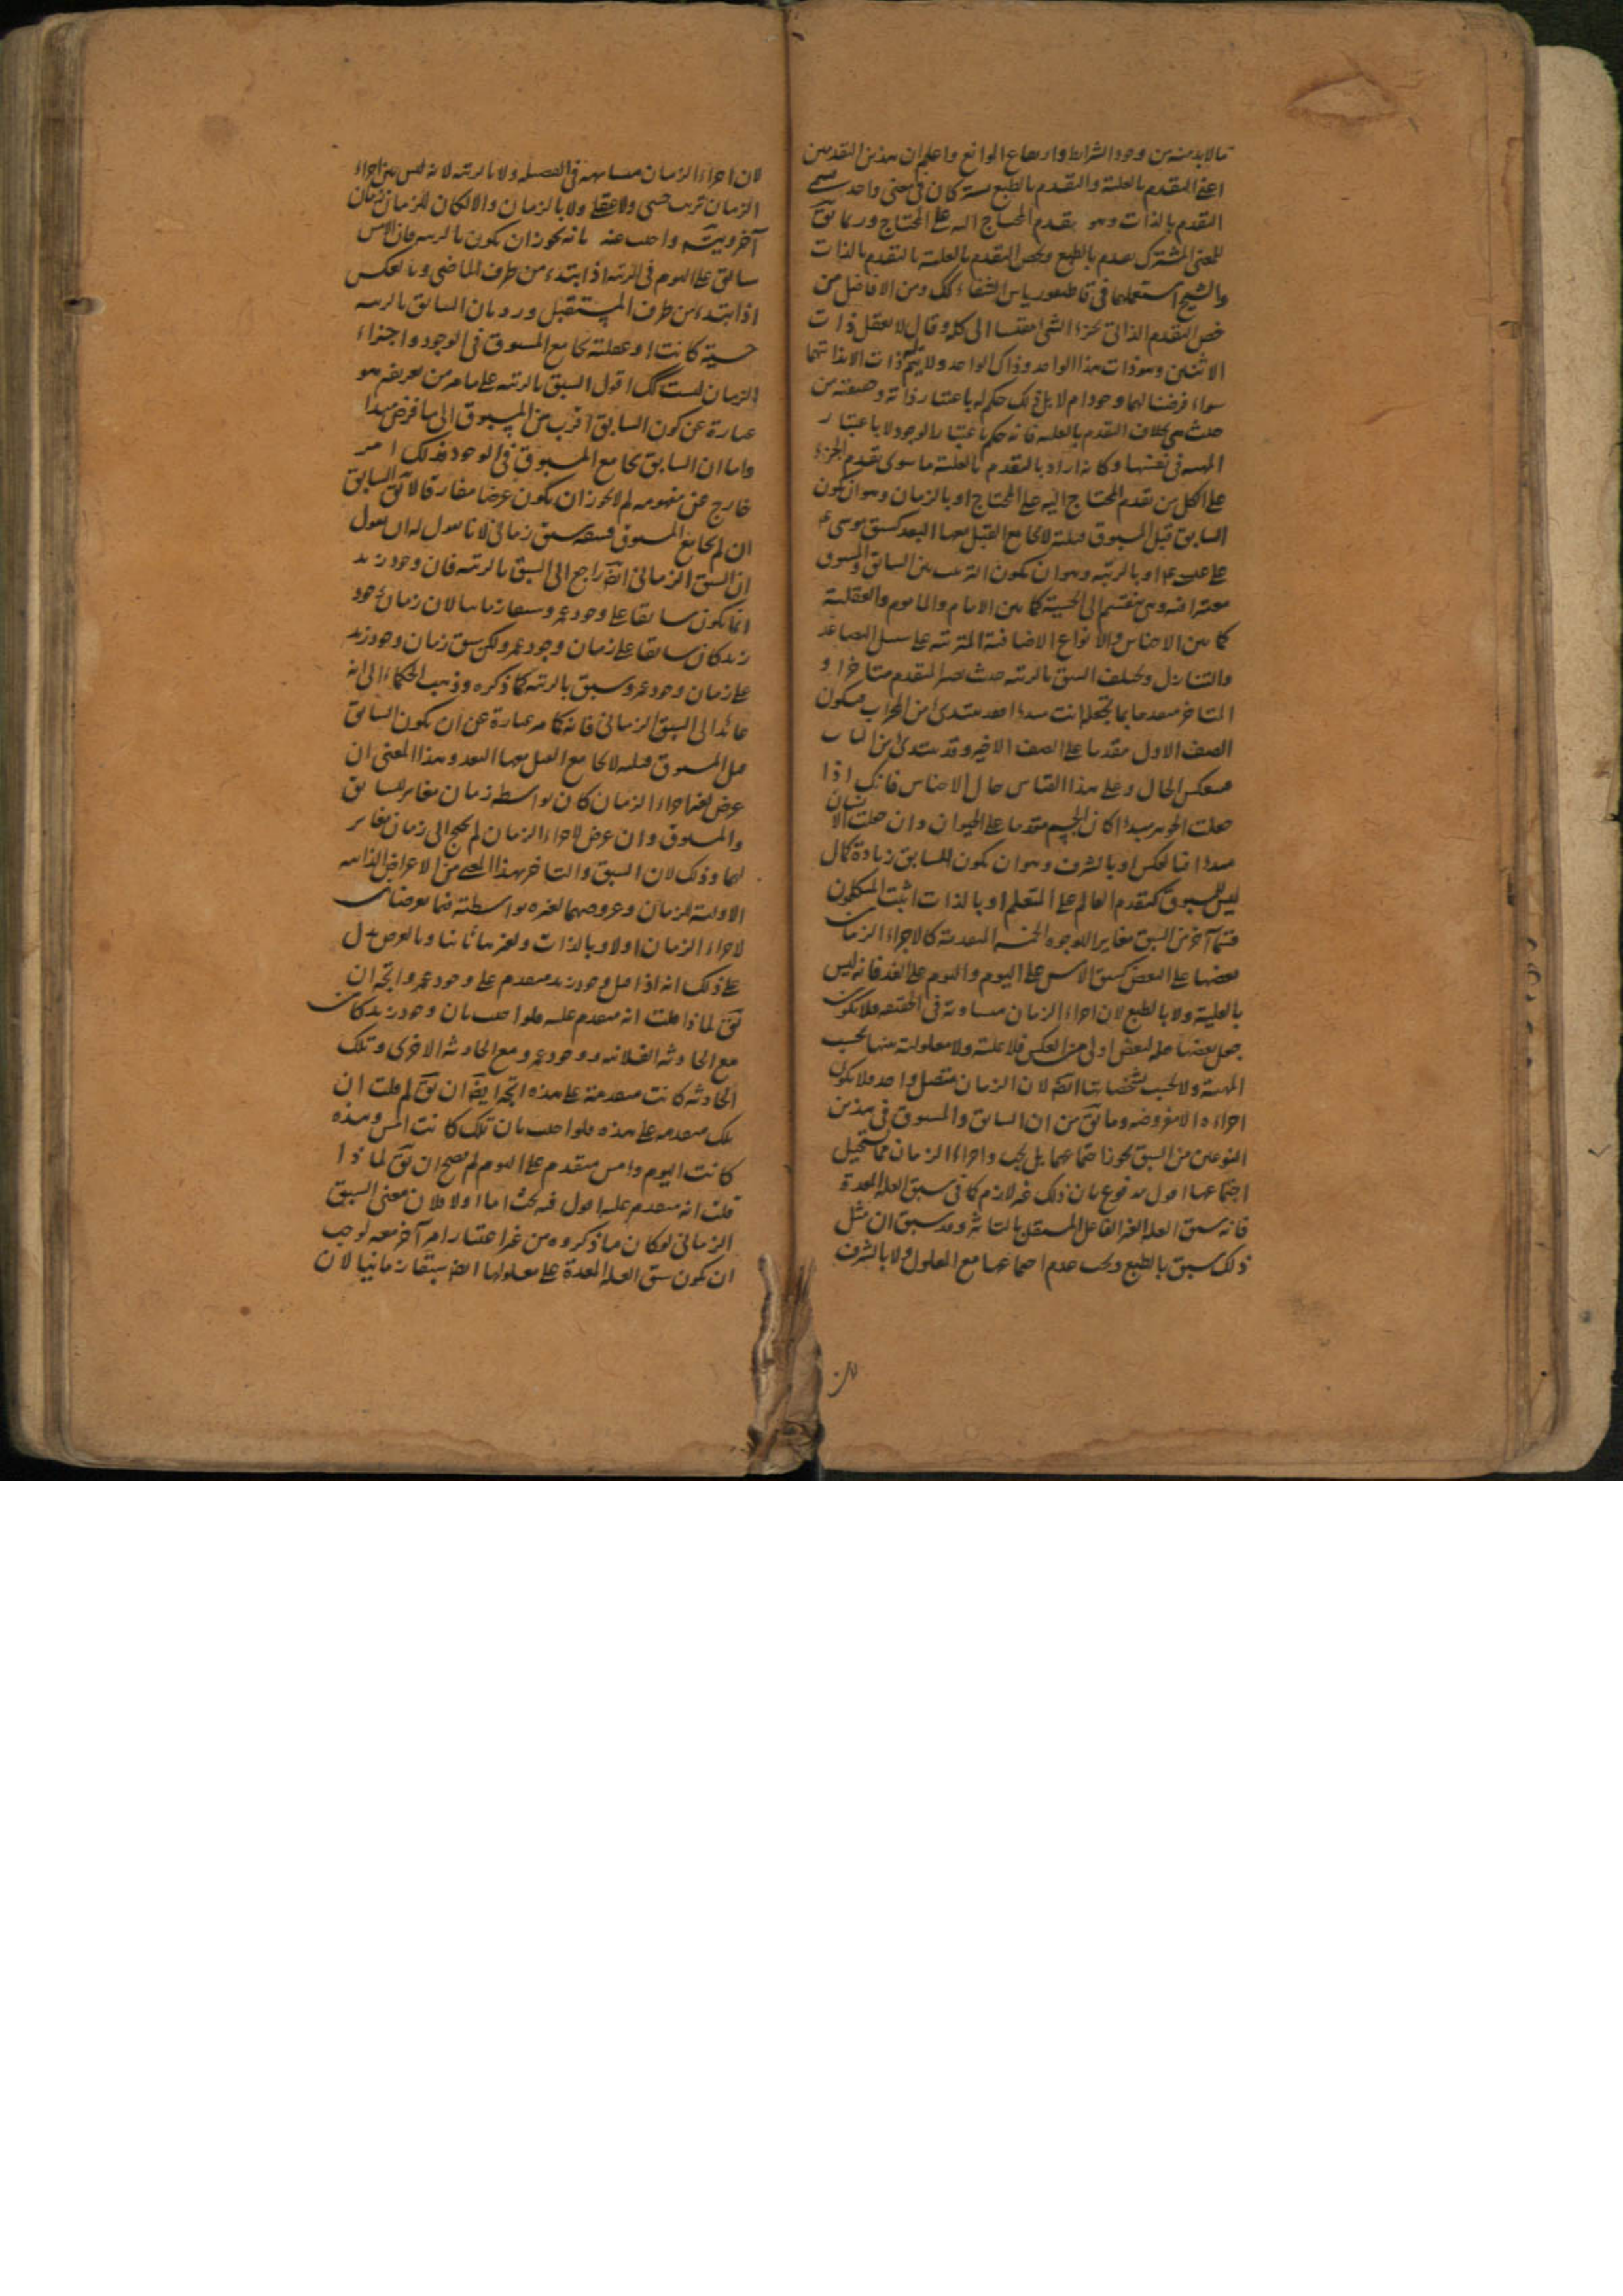 مالابد منه من وجود الشرائط وارتفاع الموانع واعلم ان هذين التقدمين
اعنى التقدم بالعلية والتقدم بالطبع مشتركان فى معنى واحد يسمى
التقدم بالذات وهو تقدم المحتاج اليه على المحتاج وربما يق
للمعنى المشترك تقدم بالطبع ويخص التقدم بالعلية بالتقدم بالذات
والشيخ استعملها فى قاطيغورياس الشفاء كك ومن الافاضل من
خص التقدم الذاتى بجزء الشى مقيسا الى كله وقال لا يعقل ذات
الاثنين وهو ذات هذا الواحد وذاك الواحد ولا يتم ذات الا بذاتهما
سواء فرضنا لهما وجود ام لا بل ذلك حكم له باعتبار ذاته وحقيقته من
حيث هى بخلاف التقدم بالعلية فانه حكم باعتبار الوجود لا باعتبار
المهية فى نفسها وكانه اراد بالتقدم بالعلية ما سوى تقدم الجزء
على الكل من تقدم المحتاج اليه على المحتاج او بالزمان وهو ان يكون
السابق قبل المسبوق قبلية لا يجامع القبل معها البعد كسبق موسى ع
على عيسى ع او بالرتبة وهو ان يكون الترتيب بين السابق والمسبوق
معتبرا فيه وهى منقسم الى الحسية كما بين الامام والماموم والعقلية
كما بين الاجناس والانواع الاضافية المترتبة على سبيل التصاعد
والتنازل ويختلف السبق بالرتبة حيث يصير المتقدم متاخرا و
المتاخر متقدما بما تجعله انت مبدءا فقد يبتدى من المحراب فيكون
الصف الاول مقدما على الصف الاخير وقد يبتدى من الباب
فينعكس الحال وعلى هذا القياس حال الاجناس فانك اذا
جعلت الجوهر مبدءا كان الجسم مقدما على الحيوان وان جعلت الانسان
مبدءا انعكس او بالشرف وهو ان يكون للسابق زيادة كمال
ليس للمسبوق كتقدم العالم على المتعلم او بالذات اثبت المتكلمون
قسما آخر من السبق مغايرا للوجوه الخمسة المتقدمة كالاجزاء الزمان
بعضها على البعض كسبق الامس على اليوم واليوم على الغد فانه ليس
بالعلية ولا بالطبع لان اجزاء الزمان متساوية فى الحقيقة فلا يكون
جعل بعضها علة لبعض اولى من العكس فلا علية ولا معلولية بينها بحسب
المهية ولا بحسب تشخصاتها ايضا لان الزمان متصل واحد فلا يكون
اجزاءه الا مفروضه وما يق من ان السابق والمسبوق فى هذين
النوعين من السبق يجوز اجتماعهما بل يجب واجزاء الزمان مما يستحيل
اجتماعها اقول مدفوع بان ذلك غير لازم كما فى سبق العلة المعدة
فانه سبق العلة الغير الفاعل المستقل بالتاثير وقد سبق ان مثل
ذلك سبق بالطبع ويجب عدم اجتماعها مع المعلول ولا بالشرف
لان
لان اجزاء الزمان متشابهة فى الفضيلة ولا بالرتبة لانه ليس بين اجزاء
الزمان ترتيب حسى ولا عقلى ولا بالزمان والا لكان للزمان زمان
آخر ويتس واجيب عنه بانه يجوز ان يكون بالرتبة فان الامس
سابق على اليوم فى الرتبة اذا ابتدء من طرف الماضى وبالعكس
اذا ابتدء من طرف المستقبل ورد بان السابق بالرتبة
حسية كانت او عقلية يجامع المسبوق فى الوجود واجزاء
الزمان ليست كك اقول السبق بالرتبة على ما مر من تعريفه هو
عبارة عن كون السابق اقرب من المسبوق الى ما فرض مبدءا
واما ان السابق يجامع المسبوق فى الوجود فذلك امر
خارج عن مفهومه لم لا يجوز ان يكون عرضا مفارقا لا يق السابق
ان لم يجامع المسبوق فسبقه سبق زمانى لانا نقول له ان يقول
ان السبق الزمانى ايضا راجع الى السبق بالرتبة فان وجود زيد
انما يكون سابقا على وجود عمرو سبقا زمانيا لان زمان وجود
زيد كان سابقا على زمان وجود عمرو ولكن سبق زمان وجود زيد
على زمان وجود عمرو سبق بالرتبة كما ذكره وذهب الحكماء الى انه
عائد الى السبق الزمانى فانه كما مر عبارة عن ان يكون السابق
قبل المسبوق قبلية لا يجامع القبل معها البعد وهذا المعنى ان
عرض لغير اجزاء الزمان كان بواسطة زمان مغاير للسابق
والمسبوق وان عرض لاجزاء الزمان لم يحتج الى زمان مغاير
لهما وذلك لان السبق والتاخر بهذا المعنى من الاعراض الذاتية
الاولية للزمان وعروضهما لغيره بواسطته فما يعرضان
لاجزاء الزمان اولا وبالذات ولغيرها ثانيا وبالعرض يدل
على ذلك انه اذا قيل وجود زيد متقدم على وجود عمرو اتجه ان
يق لماذا قلت انه متقدم عليه فلو اجيب بان وجود زيد كان
مع الحادثة الفلانية ووجود عمرو مع الحادثة الاخرى وتلك
الحادثة كانت متقدمة على هذه اتجه ايضا ان يق لم قلت ان
تلك متقدمة على هذه فلو اجيب بان تلك كانت امس وهذه
كانت اليوم وامس متقدم على اليوم لم يصح ان يق لماذا
قلت انه متقدم عليه اقول فيه بحث اما اولا فلان معنى السبق
الزمانى لو كان ما ذكروه من غير اعتبار امر آخر معه لوجب
ان يكون سبق العلة المعدة على معلولها ايضا سبقا زمانيا لان